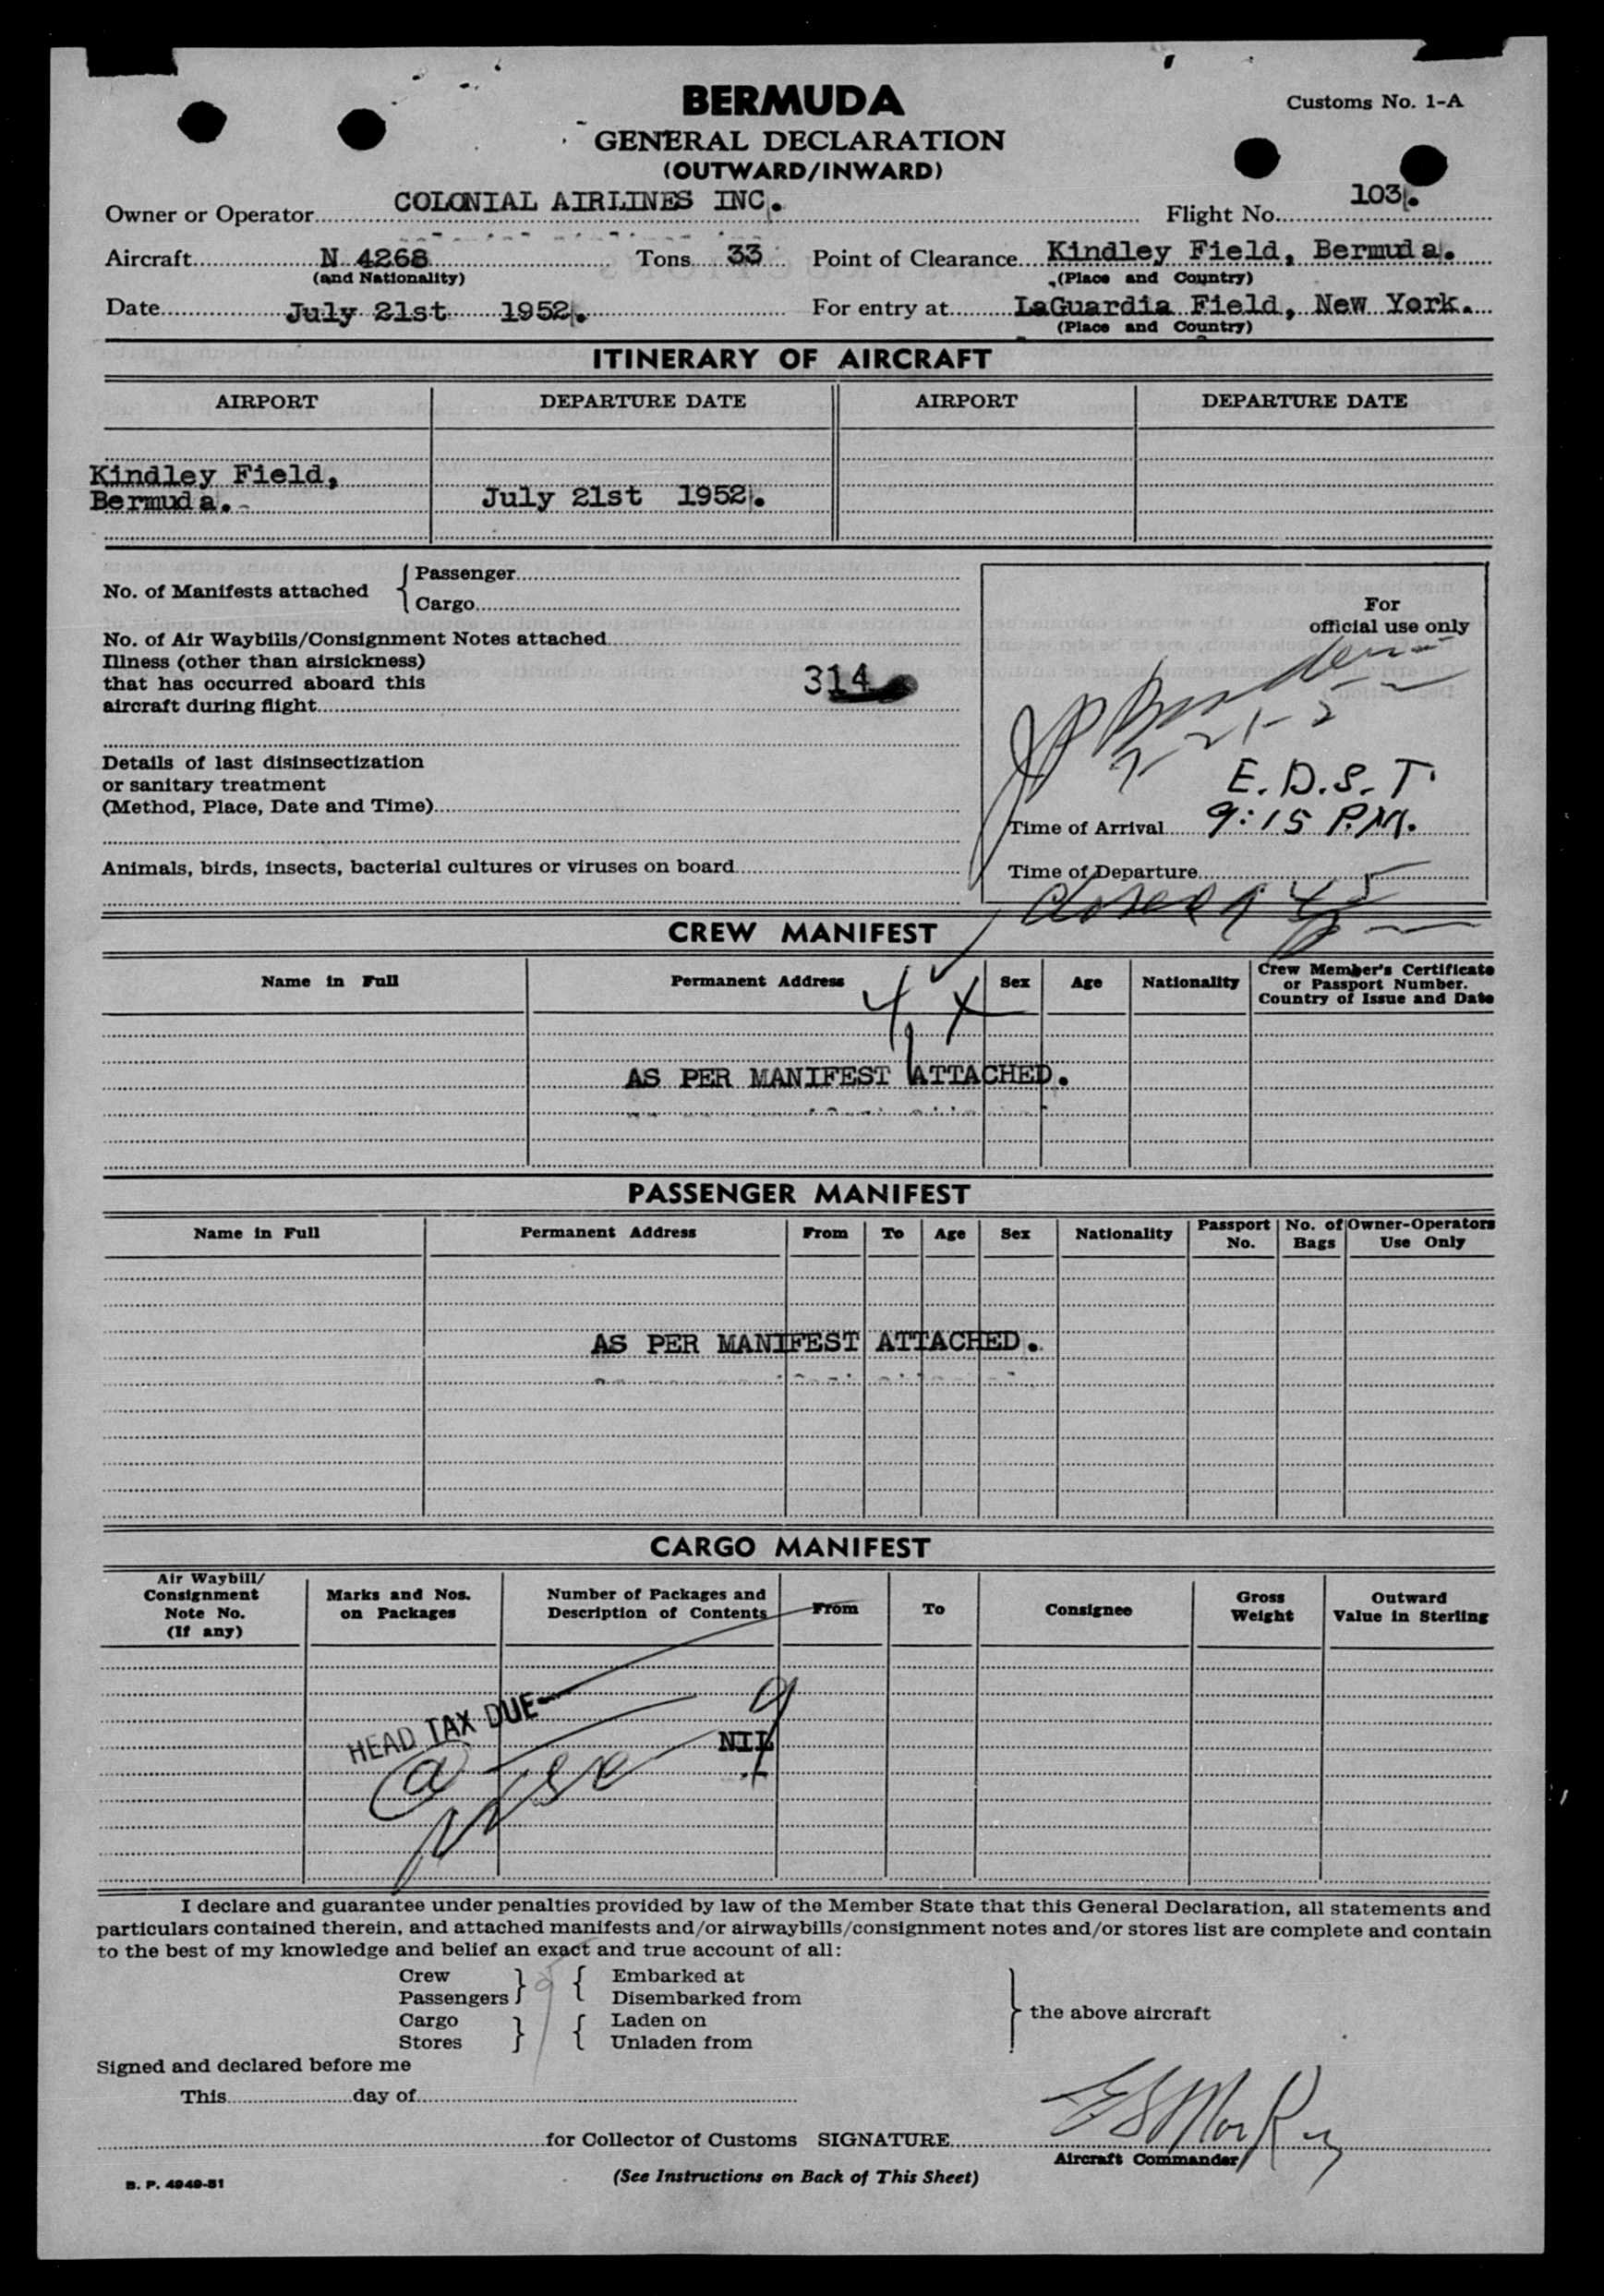 BERMUDA
Customs No. 1-A
GENERAL DECLARATION
(OUTWARD/INWARD)
Owner or Operator COLONIAL AIRLINES INC. Flight No. 103.
Aircraft N 4268 Tons 33 Point of Clearance Kindley Field, Bermuda.
(and Nationality) (Place and Country)
Date July 21st 1952. For entry at LaGuardia Field, New York.
(Place and Country)
ITINERARY OF AIRCRAFT
AIRPORT DEPARTURE DATE AIRPORT DEPARTURE DATE
Kindley Field,
Bermuda. July 21st 1952.
No. of Manifests attached { Passenger
Cargo
For
official use only
No. of Air Waybills/Consignment Notes attached
Illness (other than airsickness)
that has occurred aboard this
aircraft during flight
314
Details of last disinsectization
or sanitary treatment
(Method, Place, Date and Time)
7-21-52
E.D.S.T.
Time of Arrival 9:15 P.M.
Animals, birds, insects, bacterial cultures or viruses on board
Time of Departure
closed 9 45
CREW MANIFEST
Name in Full Permanent Address Sex Age Nationality Crew Member's Certificate
or Passport Number.
Country of Issue and Date
4
AS PER MANIFEST ATTACHED.
PASSENGER MANIFEST
Name in Full Permanent Address From To Age Sex Nationality Passport No. No. of Bags Owner-Operators Use Only
AS PER MANIFEST ATTACHED.
CARGO MANIFEST
Air Waybill/
Consignment
Note No.
(If any)
Marks and Nos.
on Packages
Number of Packages and
Description of Contents
From To Consignee
Gross
Weight
Outward
Value in Sterling
HEAD TAX DUE
9
NIL
I declare and guarantee under penalties provided by law of the Member State that this General Declaration, all statements and
particulars contained therein, and attached manifests and/or airwaybills/consignment notes and/or stores list are complete and contain
to the best of my knowledge and belief an exact and true account of all:
Crew } { Embarked at
Passengers Disembarked from
Cargo } { Laden on
Stores Unladen from
} the above aircraft
Signed and declared before me
This day of
for Collector of Customs SIGNATURE
Aircraft Commander
(See Instructions on Back of This Sheet)
B. P. 4949-51